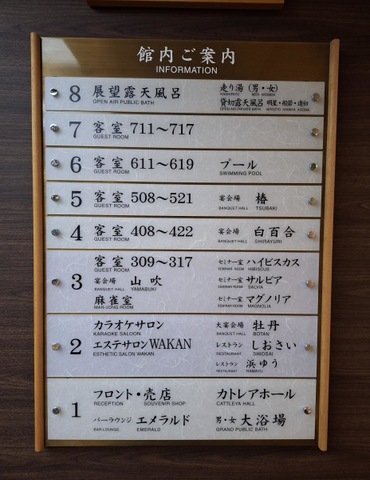 館内ご案内
INFORMATION
8 展望露天風呂 走り湯（男・女）
OPEN AIR PUBLIC BATH
貸切露天風呂
7 客室 711〜717
GUEST ROOM
6 客室 611〜619 プール
GUEST ROOM SWIMMING POOL
5 客室 508〜521 宴会場 椿
GUEST ROOM BANQUET HALL TSUBAKI
4 客室 408〜422 宴会場 白百合
GUEST ROOM BANQUET HALL SHIRAYURI
3 客室 309〜317 セミナー室 ハイビスカス
GUEST ROOM SEMINAR ROOM HIBISCUS
宴会場 山吹 セミナー室 サルビア
BANQUET HALL YAMABUKI SEMINAR ROOM SALVIA
麻雀室 セミナー室 マグノリア
MAH-JONG ROOM SEMINAR ROOM MAGNOLIA
2 カラオケサロン 大宴会場 牡丹
KARAOKE SALOON BANQUET HALL BOTAN
エステサロンWAKAN レストラン しおさい
ESTHETIC SALON WAKAN RESTAURANT SHIOSAI
レストラン 浜ゆう
RESTAURANT HAMAYU
1 フロント・売店 カトレアホール
RECEPTION SOUVENIR SHOP CATTLEYA HALL
バーラウンジ エメラルド 男・女 大浴場
BAR LOUNGE EMERALD GRAND PUBLIC BATH